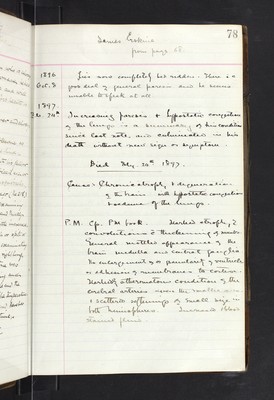 78
James Erskine
from page 28.
1896
Oct. 3
Lies now completely bed ridden. There is a
good deal of general paresis and he seems
unable to speak at all
1897
Feb. 24th
Increasing paresis & hypostatic congestion
of the lungs is a summary of his condition
since last note, and culminated in his
death without new sign or symptom.
Died Feby 24th 1897.
Cause: Chronic atrophy & degeneration
of the brain with hypostatic congestion
& oedema of the lungs.
P.M. Cp. P.M. book. Marked atrophy of
convolutions & thickening of
General mottled appearance of the
brain medulla and central ganglia
No enlargement or granularity of ventricles
or adhesion of membranes to cortex.
Markedly atheromatous condition of the
cerebral arteries even the smaller ones
& scattered softenings of small size in
both hemispheres. Increased
fluid.